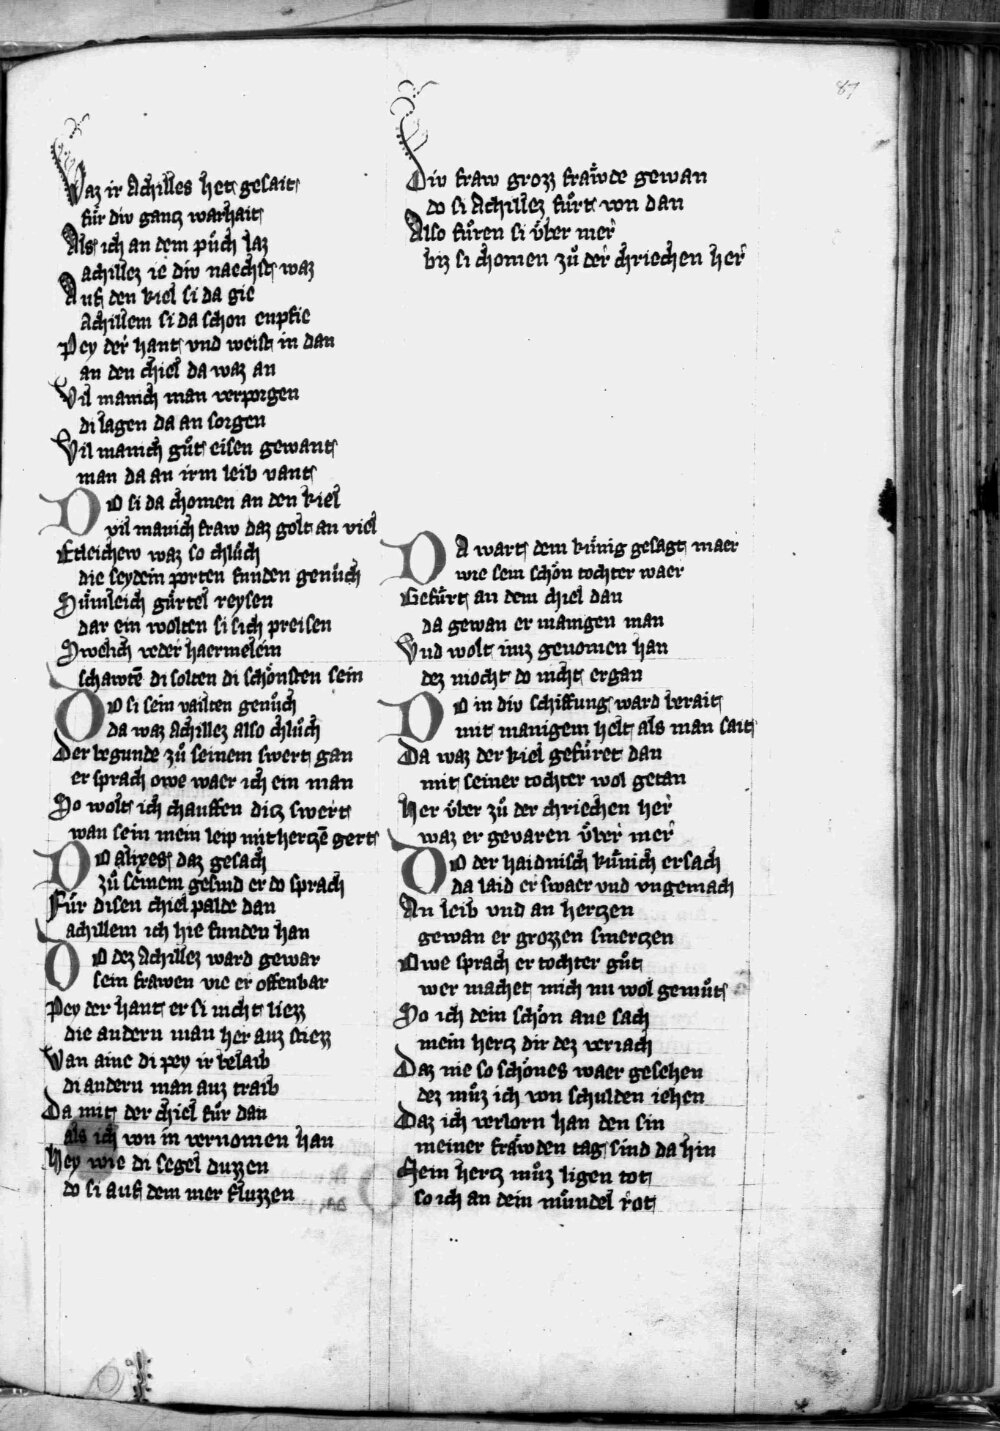 87
Waz ir Achilles het gesait
für div gancz warhait
Als ich an dem půch laz
achillez ie div naechst waz
Auf den kiel si da gie
Achillem si da schon enpfie
Pey der hant vnd weist in dan
an den chiel da waz an
Vil manich man verporgen
di lagen da an sorgen
Vil manich gůt eisen gewant
man da an irm leib vant
Do si da chomen an den kiel
vil manich fraw daz golt an viel
Etleichew waz so chlůch
die seydein porten funden genůch
Sümleich gürtel reysen
dar ein wolten si sich preisen
Swelich veder haermelein
schawtē di solten di schönsten sein
Do si sein vailten genůch
da waz Achillez also chlůch
Der begunde zů seinem swert gan
er sprach owe waer ich ein man
So wolt ich chauffen dicz swert
wan sein mein leip mit herczē gert
Do alixes daz gesach
zů seinem gesind er do sprach
Für disen chiel palde dan
achillem ich hie funden han
Do dez Achillez ward gewar
sein frawen vie er offenbar
Pey der hant er si nicht liezz
die andern man her auz stiezz
Wan aine di pey ir belaib
di andern man auz traib
Da mit der chiel für dan
als ich von in vernomen han
Hey wie di segel duzzen
do si auf dem mer fluzzen
Div fraw grozz fräwde gewan
do si Achillez fůrt von dan
Also fůren si über mer
biz si chomen zů der chriechen her
Da wart dem künig gesagt maer
wie sein schön tochter waer
Gefürt an dem chiel dan
da gewan er manigen man
Vnd wolt imz genomen han
dez mocht do nicht ergan
Do in div schiffung ward berait
mit manigem helt als man sait
Da waz der kiel gefüret dan
mit seiner tochter wol getan
Her über zů der chriechen her
waz er gevaren über mer
Do der haidnisch künich ersach
da laid er swaer vnd vngemach
An leib vnd an herczen
gewan er grozzen smerczen
Owe sprach er tochter gůt
wer machet mich nu wol gemůt
So ich dein schön ane sach
mein hercz dir dez veriach
Daz nie so schönes waer gesehen
dez můz ich von schulden iehen
Daz ich verlorn han den sin
meiner fräwden tag sind da hin
Mein hercz můz ligen tot
so ich an dein mündel rot